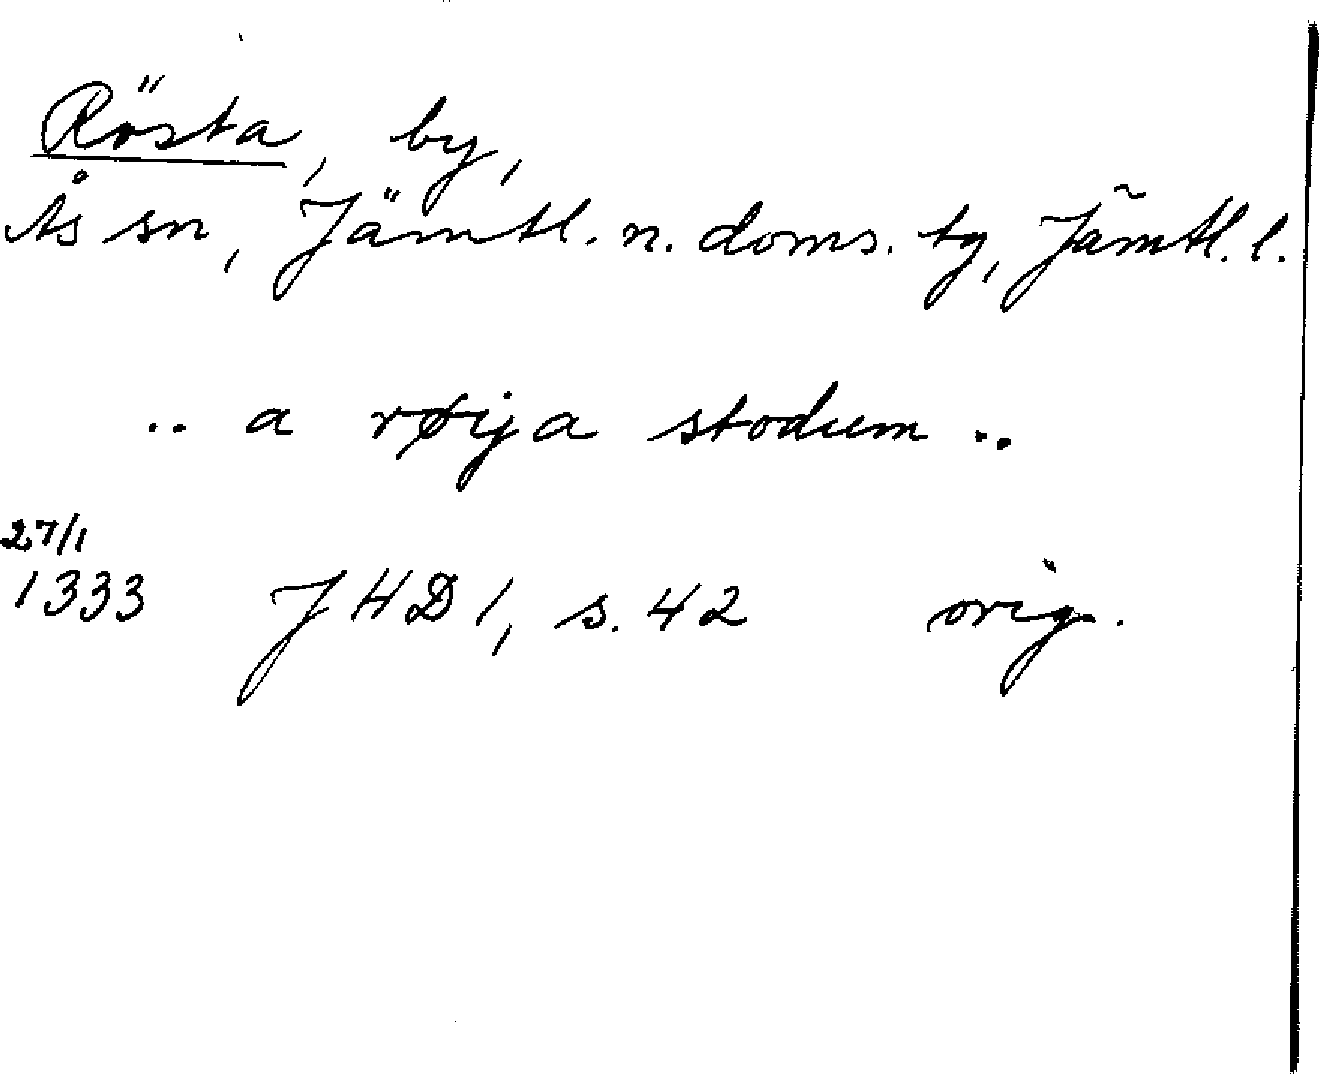 Rösta, by,
Ås sn, Jämtl. n. doms. tg, Jämtl. l.
.. a røija stodum ..
27/1
1333 JHD 1, s. 42 orig.